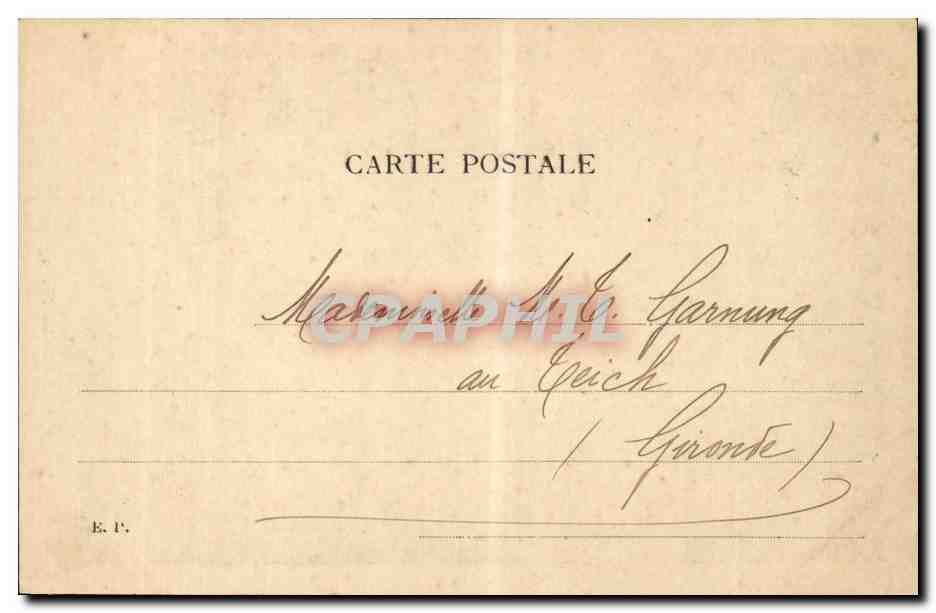 CARTE POSTALE
Mademoiselle M. T. Garnung
CPAPHIL
au Teich
(Gironde)
E. P.